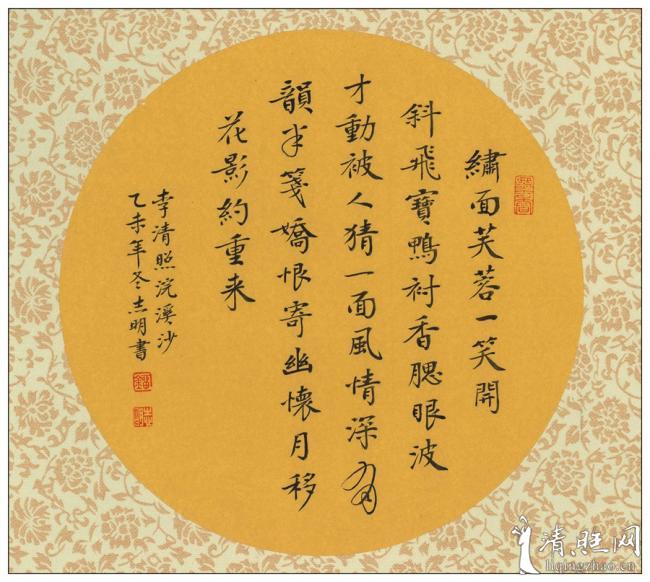 繡面芙蓉一笑開
斜飛寶鴨衬香腮眼波
才動被人猜一面風情深有
韻半箋嬌恨寄幽懷月移
花影約重来
李清照浣溪沙
乙未年冬志明書
清照网
liqingzhao.cn